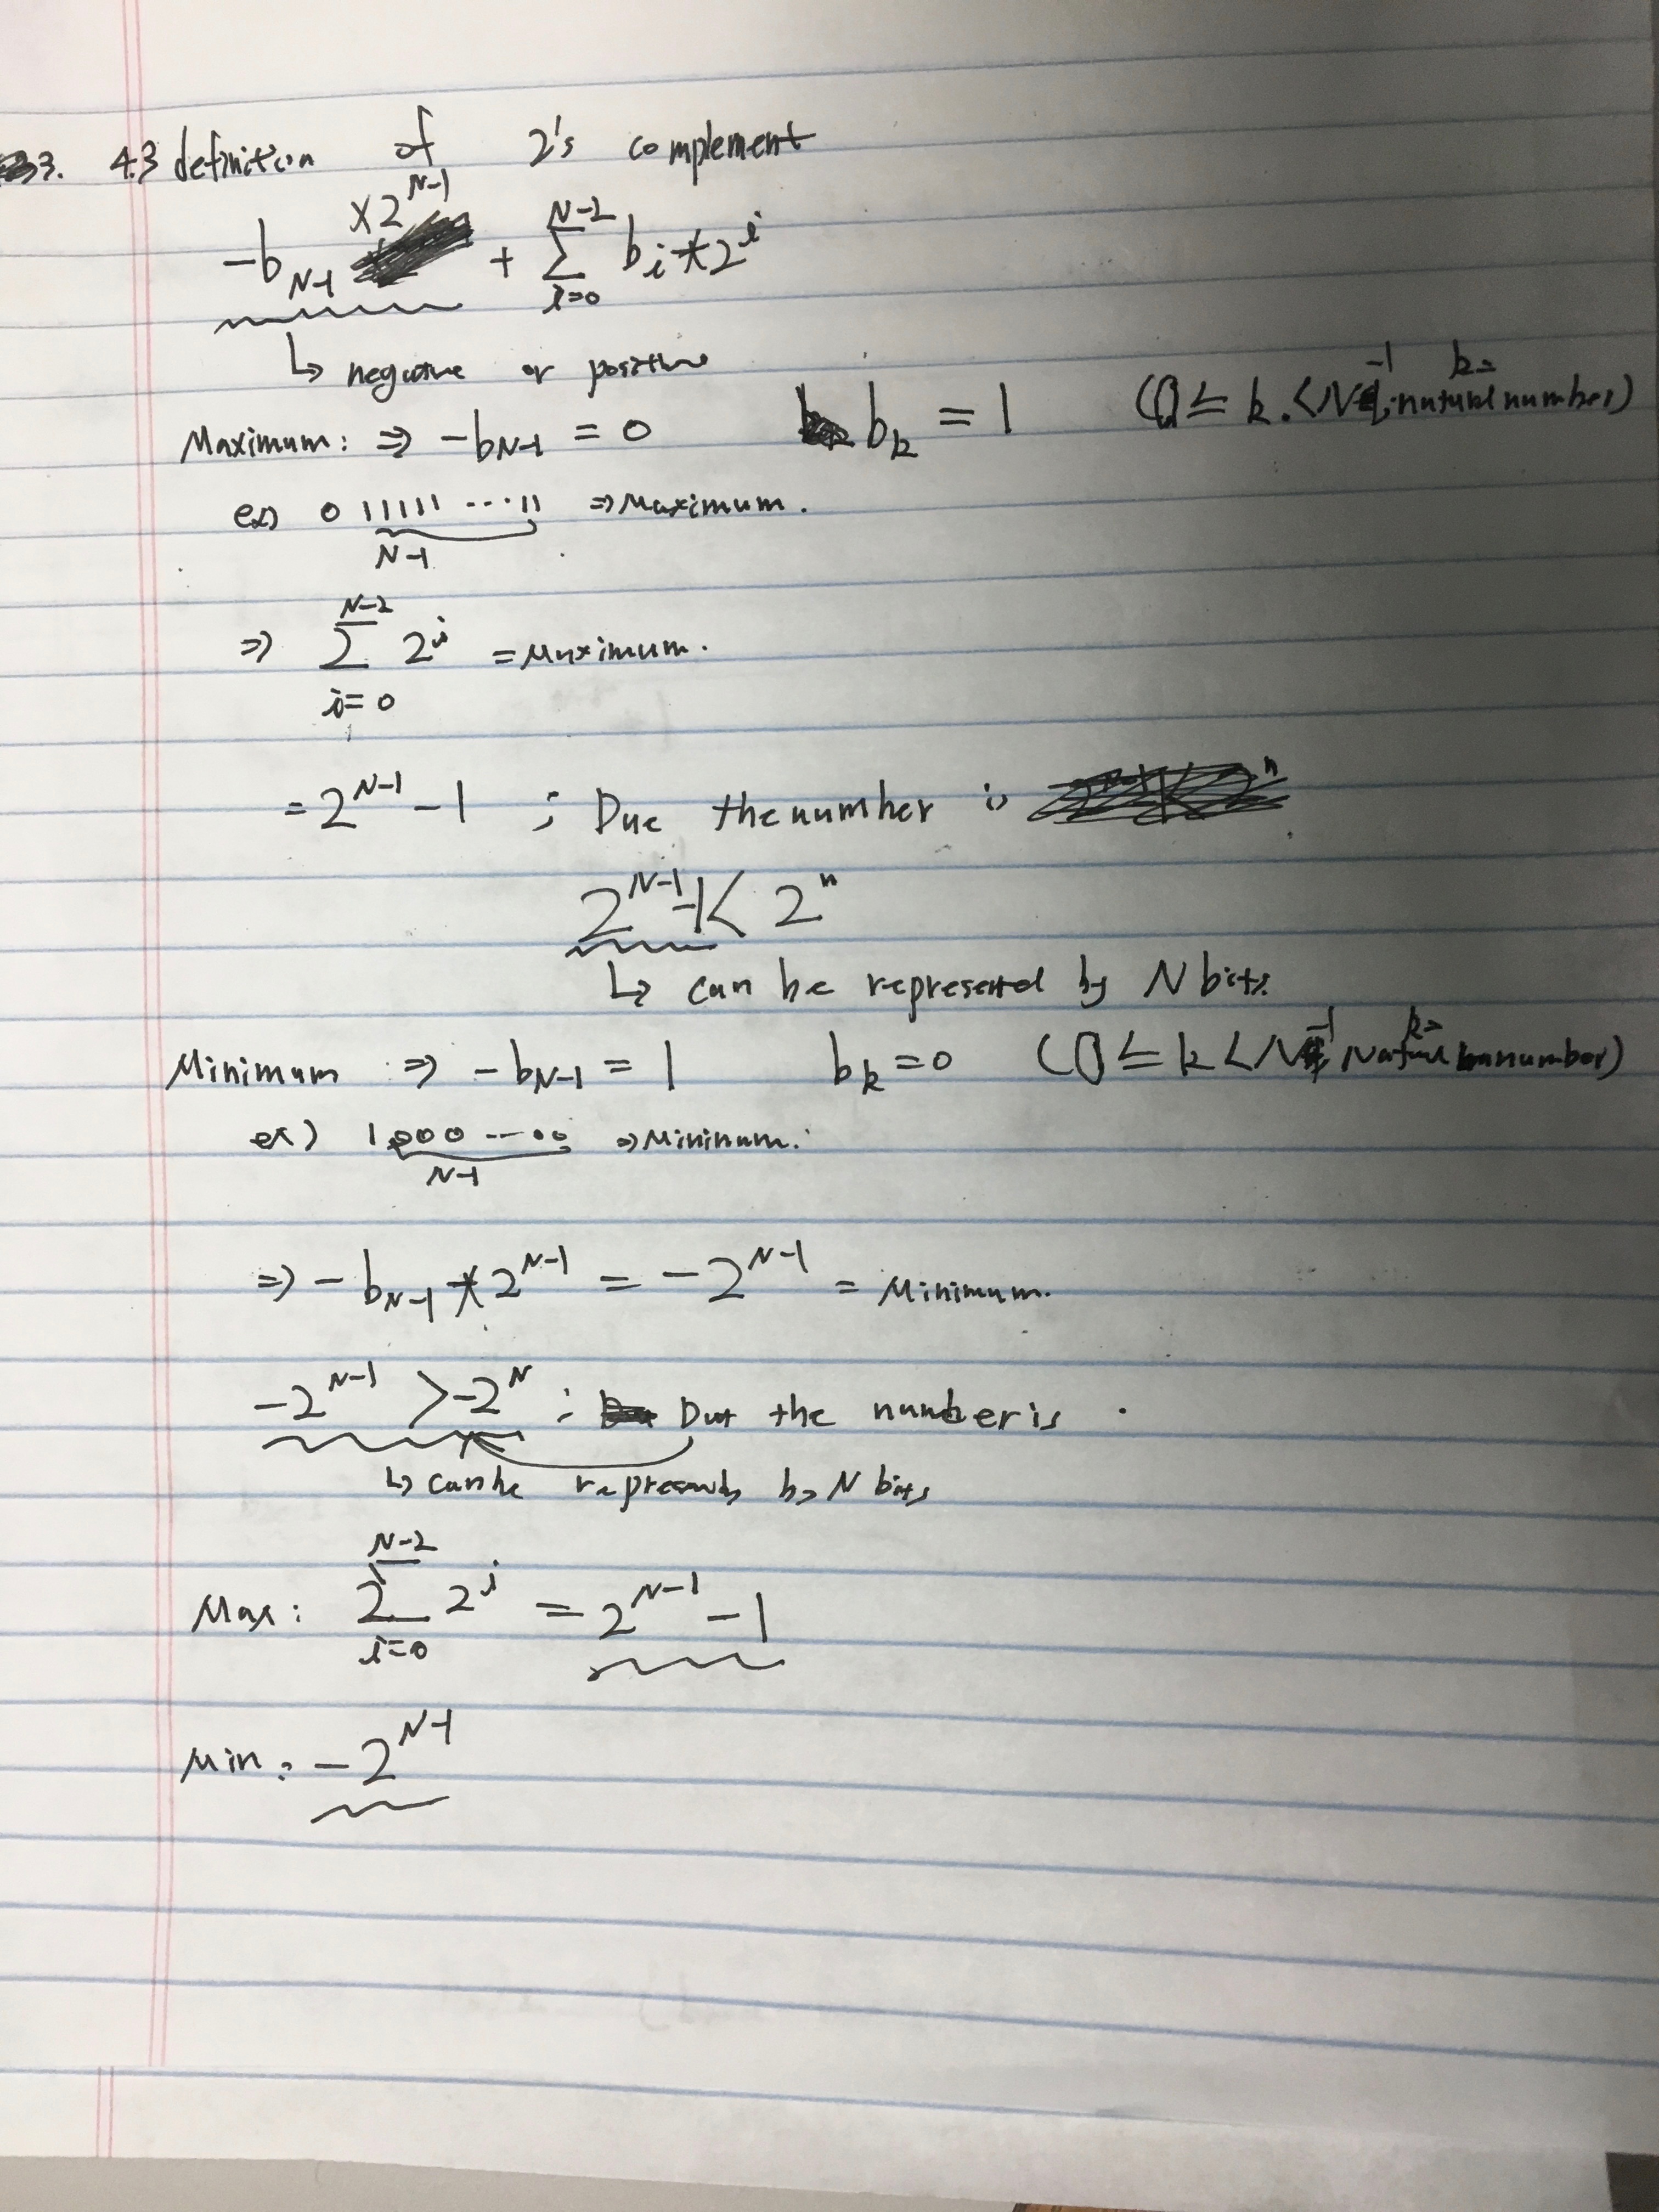 3. 4.3 definition of 2's complement
-b_{N-1} ×2^{N-1} + Σ_{i=0}^{N-2} b_i * 2^i
↳ negative or positive
Maximum: ⇒ -b_{N-1} = 0 b_k = 1 (0 ≤ k < N-1, k= natural number)
ex) 0 11111 ... 11 ⇒ Maximum.
N-1
⇒ Σ_{i=0}^{N-2} 2^i = Maximum.
= 2^{N-1} - 1 ; Due the number is
2^{N-1} -1 < 2^n
↳ can be represented by N bits.
Minimum ⇒ -b_{N-1} = 1 b_k = 0 (0 ≤ k < N-1 k= Natural number)
ex) 1 000 ... 00 ⇒ Minimum.
N-1
⇒ -b_{N-1} * 2^{N-1} = -2^{N-1} = Minimum.
-2^{N-1} > -2^N ; Due the number is .
↳ can be by N bits
Max: Σ_{i=0}^{N-2} 2^i = 2^{N-1} - 1
Min: -2^{N-1}